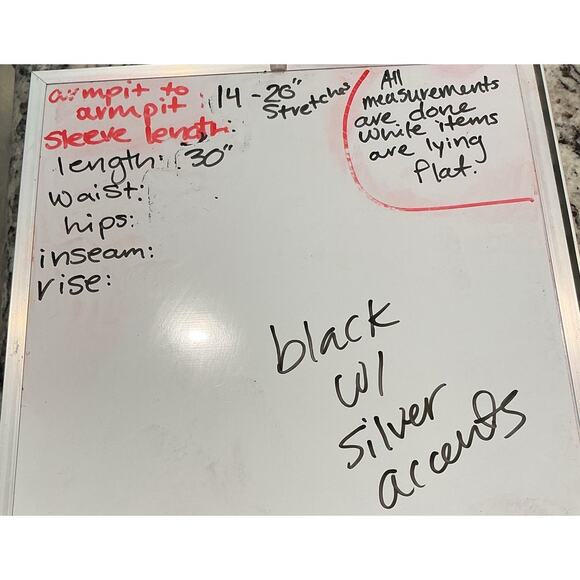 armpit to
armpit: 14 - 20" stretches
sleeve length:
length: 30"
waist:
hips:
inseam:
rise:
All
measurements
are done
while items
are lying
flat.
black
w/
silver
accents